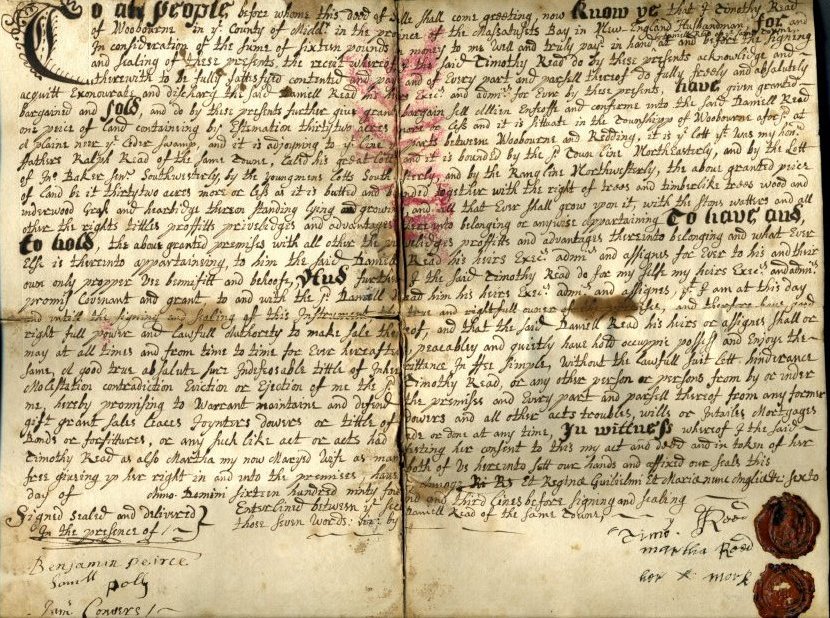 To all people before whome this deed of Sale Shall come greeting, now Know ye that I Timothy Read
of Woobourne in ye County of Middx in the province of the Massatusets Bay in New-England Husbandman, for and
In consideration of the sume of Sixteen pounds money to me well and truly pay'd in hand at and before the signing
and sealing of these presents, the receit whereof I the said Timothy Read do by these presents acknowledge and
therewith to be fully sattesfyed contented and payd and of Every part and parsell thereof do fully freely and absolutely
acquitt Exonourate and discharg the said Daniell Read his heirs Execrs and admrs for Ever by these presents, have given granted
bargained and sold, and do by these presents further give grant bargain sell allien Enfeoffe and confirme unto the said Daniell Read
one piece of land containeing by Estemation thirty two acres more or less and it is situate in the Townshipp of Woobourne aforsd at
a plaine neer ye Cedar Swamp, and it is adjoyning to ye line parts between Woobourne and Redding, it is ye lott yt was my honrd
fathers Ralph Read of the same Towne, Calld his Great Lott and it is bounded by the sd Town line NorthEasterly, and by the Lott
of Jno Baker senr Southwesterly, by the youngmens Lotts Southesterly, and by the Rang line Northwesterly, the above granted piece
of Land be it thirty two acres more or less as it is butted and bounded together with the right of trees and timberlike trees wood and
underwood Grass and hearbidge thereon standing lying and growing and all that Ever shall grow upon it, with the stons watters and all
other the rights titles proffitts priveledges and advantages thereunto belonging or anywise appartaining To have and
to hold, the above granted premises with all other the priveledges proffitts and advantages thereunto belonging and what Ever
Else is thereinto appartaineing, to him the said Daniell Read his heirs Execrs admrs and assignes for Ever to his and their
own only propper Use bennifitt and behoofe, And further I the said Timothy Read do for my selfe my heirs Execrs and admrs
promis Covenant and grant, to and with the sd Daniell Read him his heirs Execrs admrs and assignes, yt I am at this day
and untill the signing and sealing of this Instrument the true and rightfull owner of and therefore have good
right full power and Lawfull authority to make sale thereof, and that the said Daniell Read his heirs or assignes shall or
may at all times and from time to time for Ever hereafter peaceably and quietly have hold occuppie possess and Enjoye the
same, a good true absalute sure Indefisable tittle of Inheritance In ffee simple, without the lawfull suit Lett hinderance
Molestation contradiction Eviction or Ejection of me the sd Timothy Read, or any other person or persons from by or under
me, hereby promising to Warrant maintaine and defend the premises and Every part and parsell thereof from any former
gift grant sales Leaces Joynters dowers or tittle of Dowers and all other acts troubles, wills or Intailes Mortgages
Bonds or forfitures, or any such like act or acts had made or done at any time, In witness whereof I the said
Timothy Read as also Martha my now Maryed Wife as manifesting her consent to this my act and deed and in token of her
free giveing up her right in and unto the premises, have both of us hereunto sett our hands and affixed our seals this
day of Anno Domini sixteen hundred ninty four Annoqe Ri Rs Et Regina Guilielmi Et Maria nunc Anglia &c: sexto
Signed sealed and delivered Enterlined between ye second and third Lines before signing and sealing
In the presence of those seven words: viz: by Daniell Read of the same Towne
Timo: Reed
Benjamin peirce
Martha Reed
Samll poly
her X mark
Jams Convers